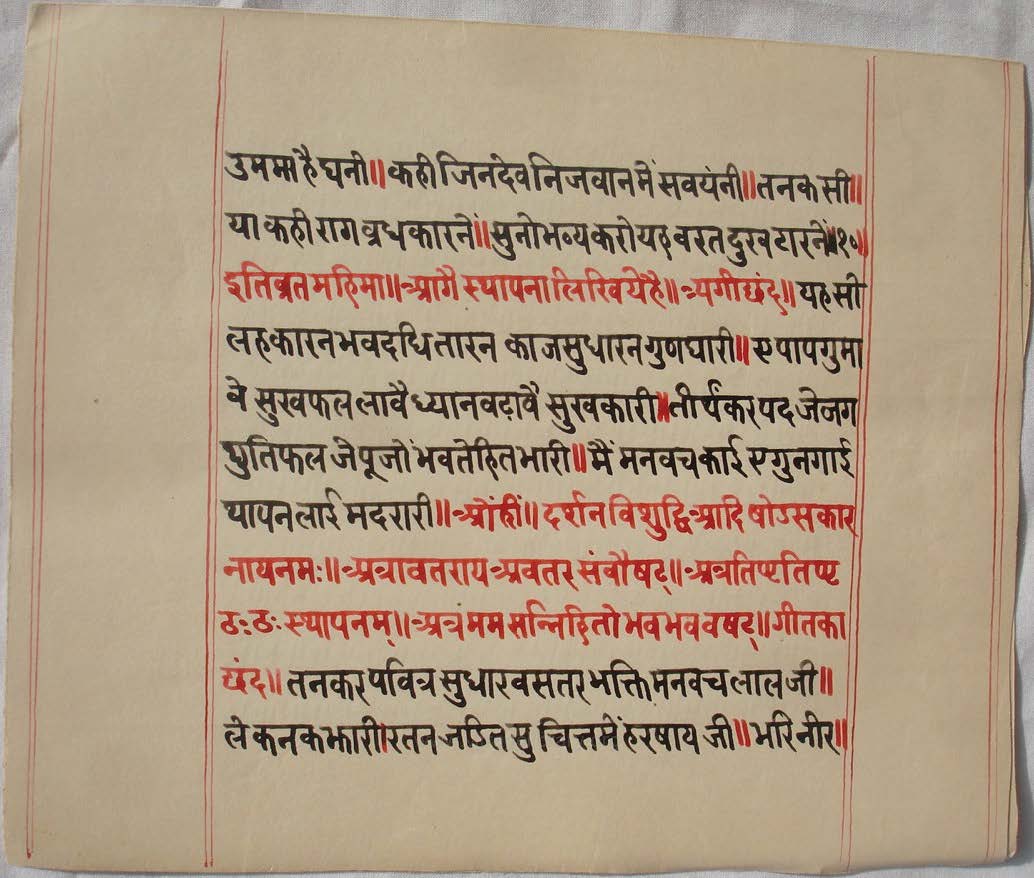 उममा है घनी॥ कही जिनदेव निजवान में सवयंनी॥ तनक सी॥
या कही राग व्रधकारनें॥ सुनो भव्य करो यह वरत दुख टारनें॥१०॥
इति व्रत महिमा॥ आगै स्थापना लिखिये है॥ त्र्यगी छंद॥ यह सी
लहकारन भवदधितारन काज सुधारन गुणधारी॥ ए पाप गुमा
वे सुखफल लावै ध्यान वढावै सुखकारी॥ तीर्थंकर पद जे जग
धुतिफल जे पूजों भवतेहितभारी॥ मैं मनवचकाई ए गुनगाई
थापन लाई मदरारी॥ ओंह्रीं॥ दर्शनविशुद्धि आदि षोडसकार
नायनमः॥ अत्रावतराय अवतर संवौषट्॥ अत्रतिष्टतिष्ट
ठःठः स्थापनम्॥ अत्रंममसन्निहितो भवभव वषट्॥ गीतका
छंद॥ तनकर पवित्र सुधारवसतर भक्ति मनवच लालजी॥
ले कनकझारी॥ रतन जडित सु चित्तमें हरषायजी॥ भरि नीर॥